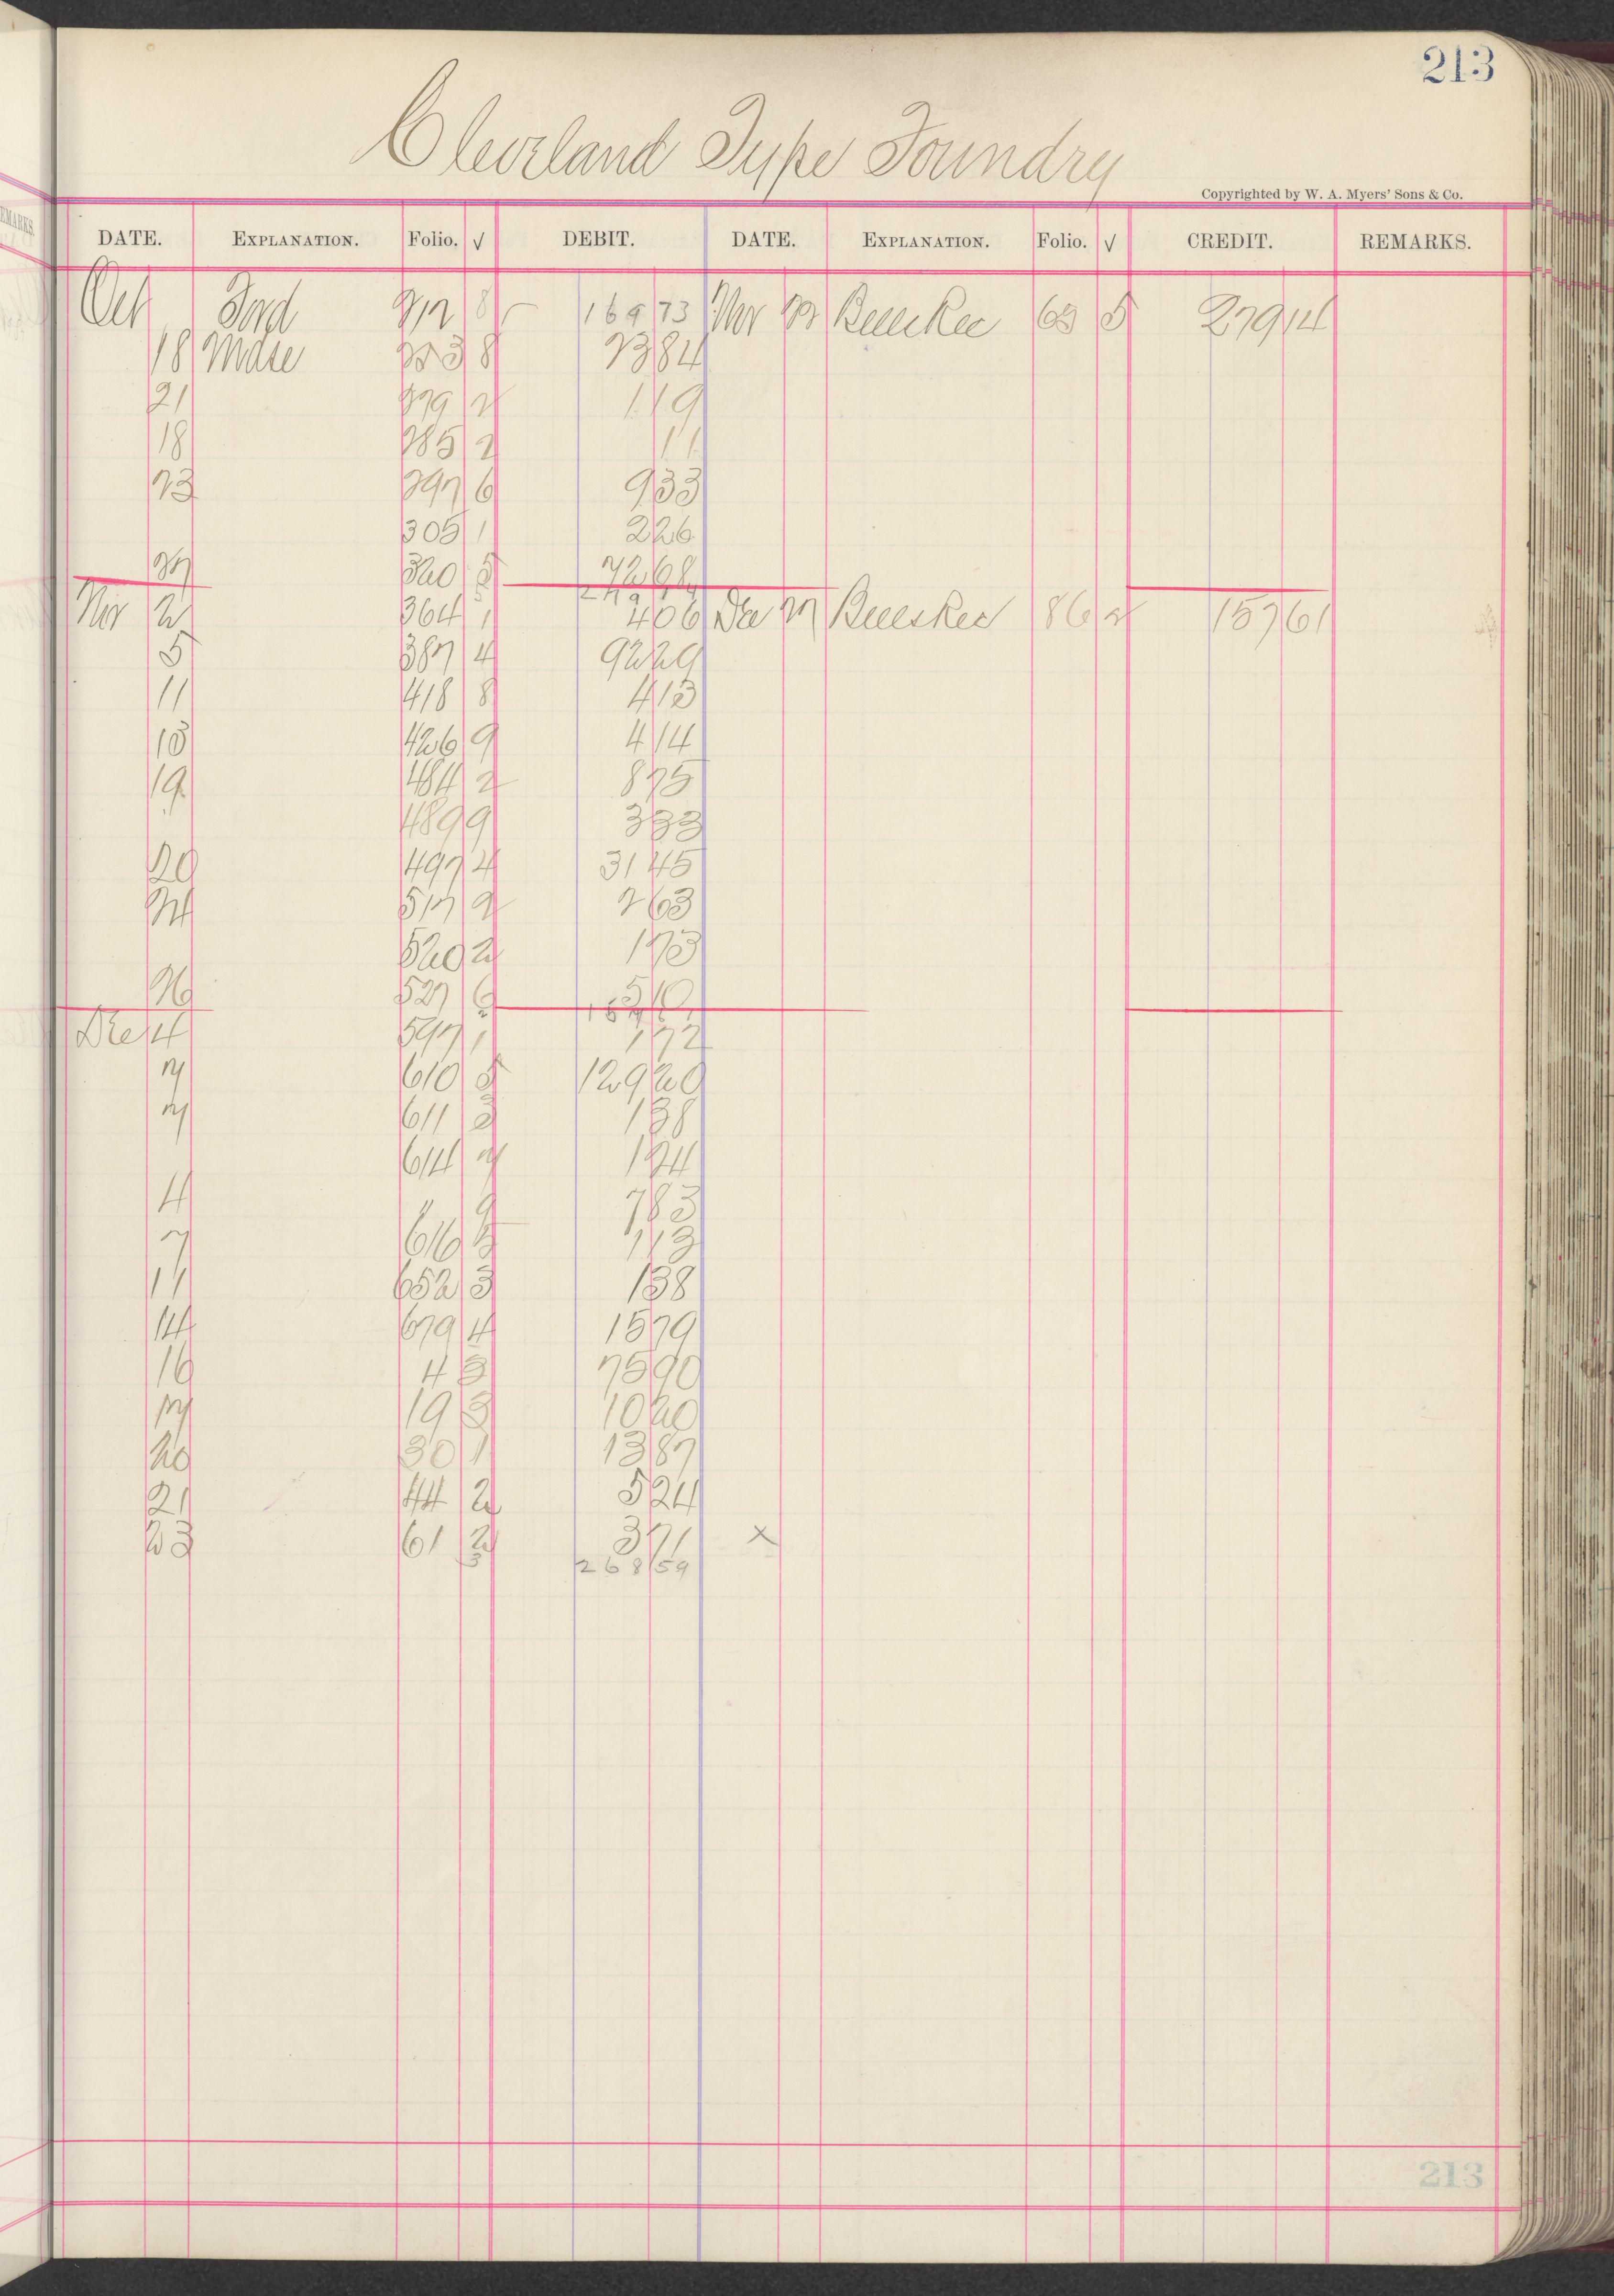 213
Cleveland Type Foundry
Copyrighted by W. A. Myers' Sons & Co.
DATE. EXPLANATION. Folio. √ DEBIT. DATE. EXPLANATION. Folio. √ CREDIT. REMARKS.
Oct Ford 212 8 169 73 Nov 27 Bills Rec 65 5 279 14
18 Mdse 273 8 23 84
21 279 2 1 19
18 285 2 11
23 297 6 9 33
305 1 2 26
27 320 5 72 68
279 14
Nov 2 364 1 4 06 Dec 27 Bills Rec 86 2 157 61
5 387 4 92 29
11 418 8 4 13
13 426 9 4 14
19 484 2 8 75
489 9 3 33
20 497 4 31 45
24 517 2 2 63
520 2 1 73
26 527 6 5 10
157 61
Dec 4 597 1 1 72
7 610 5 129 20
7 611 3 1 38
614 7 1 24
4 " 9 7 83
7 616 5 1 13
11 652 3 1 38
14 679 4 15 79
16 4 3 75 90
17 19 3 10 20
20 30 1 13 87
21 44 2 5 24
23 61 2 3 71 x
3 268 59
213